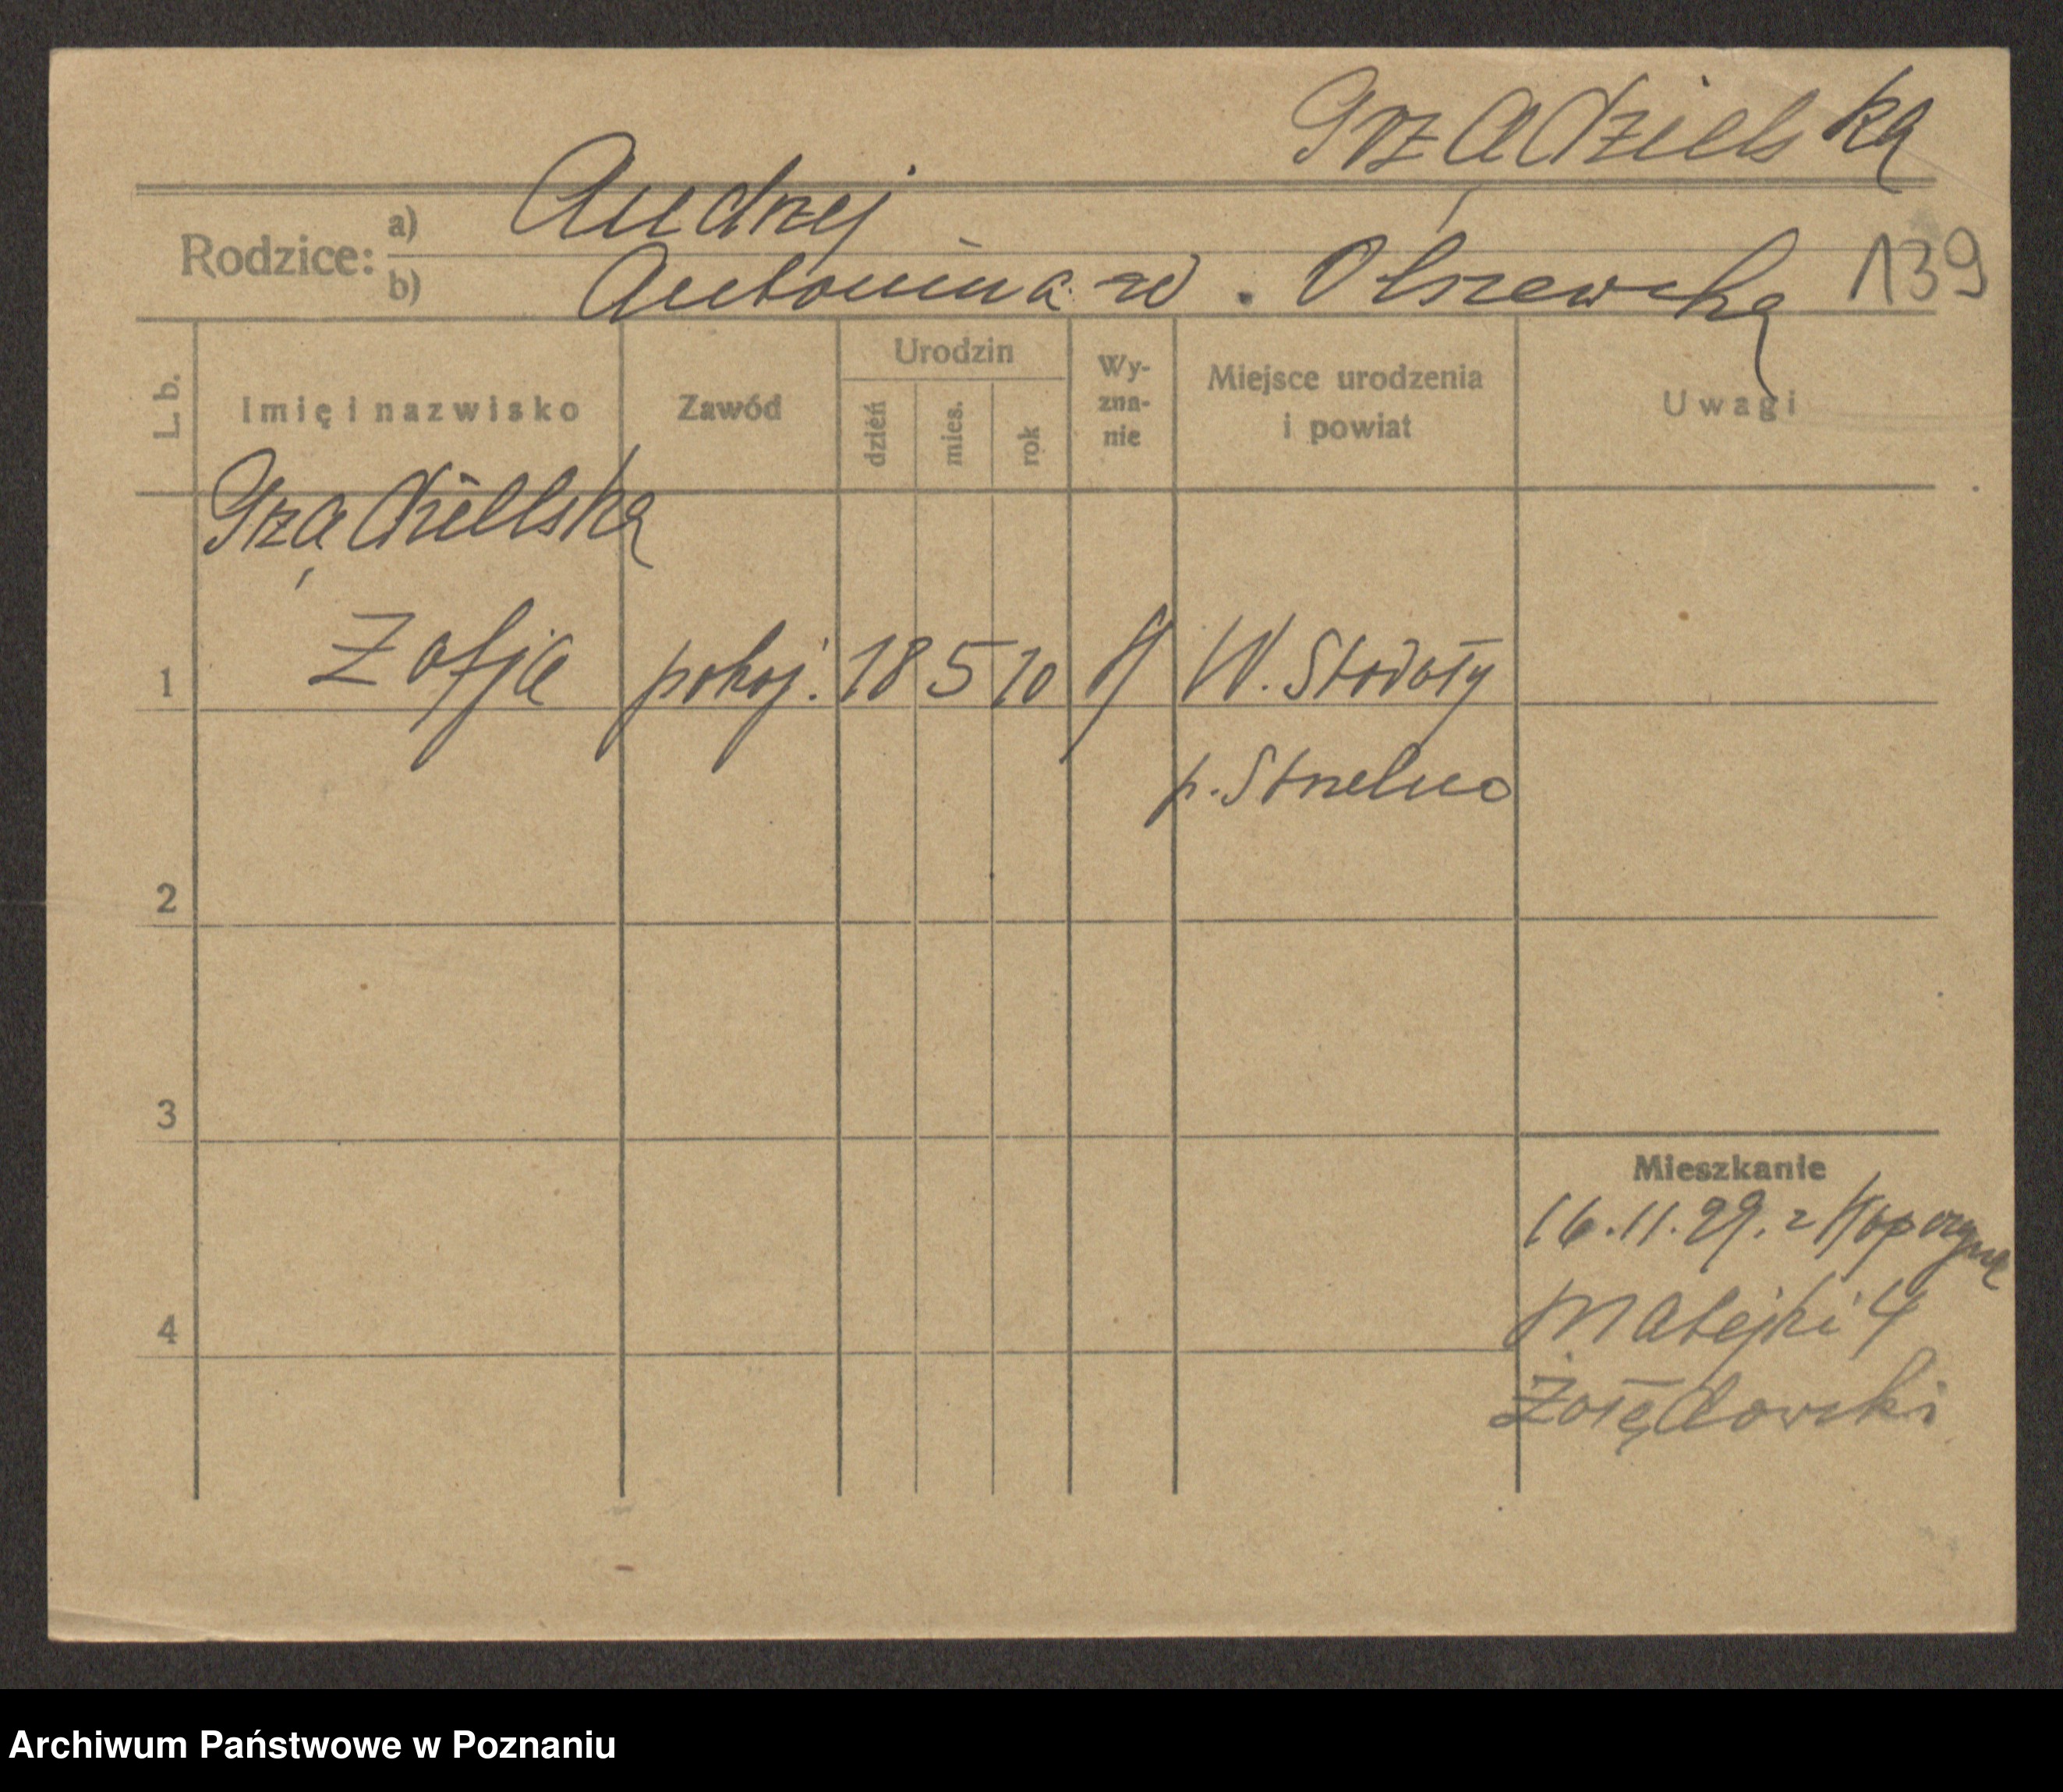 Grządzielska
Rodzice:
a) Andrzej
b) Antonina zd. Olszewska
139
L. b.
Imię i nazwisko
Zawód
Urodzin
dzień
mies.
rok
Wy-
zna-
nie
Miejsce urodzenia
i powiat
Uwagi
Grządzielska
1 Zofja pokoj. 18 5 10 W. Stodoły
p. Strzelno
2
3
4
Mieszkanie
16.11.29. z
Matejki 4
Żołędowski
Archiwum Państwowe w Poznaniu